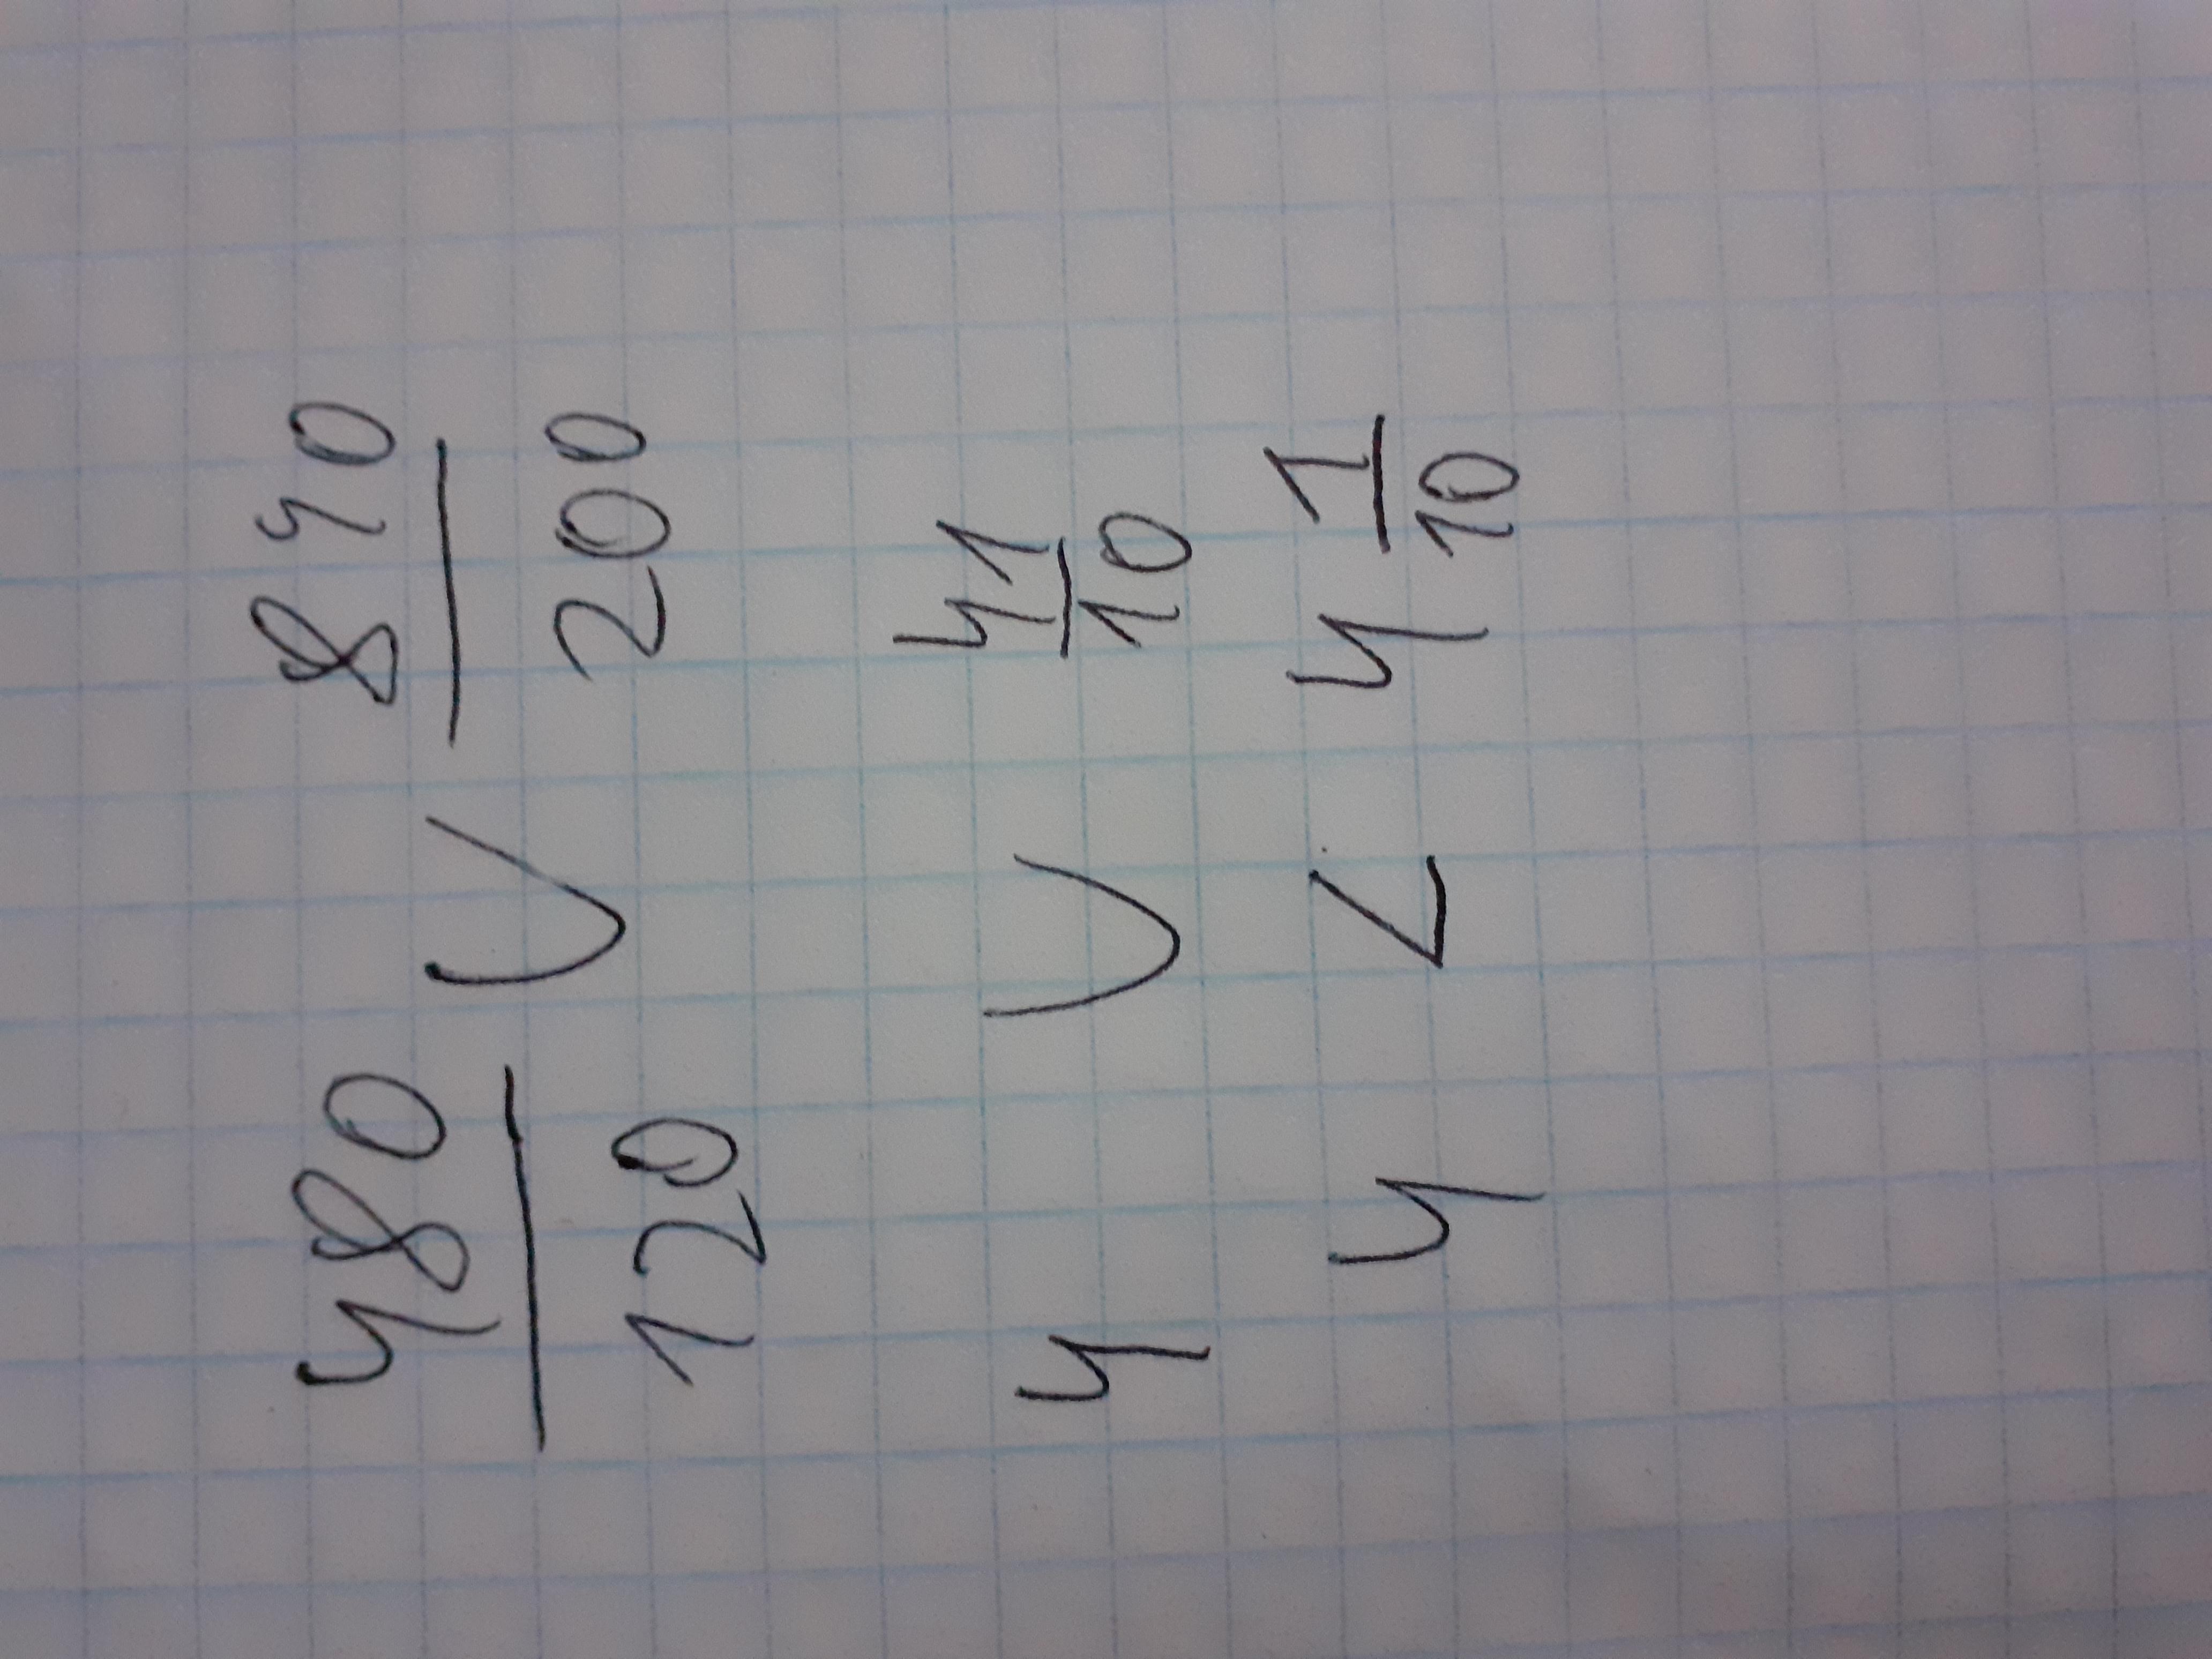 480/120 V 840/200
4 V 41/10
4 < 4 1/10